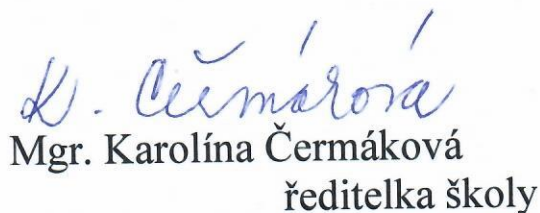 K. Čermáková
Mgr. Karolína Čermáková
ředitelka školy